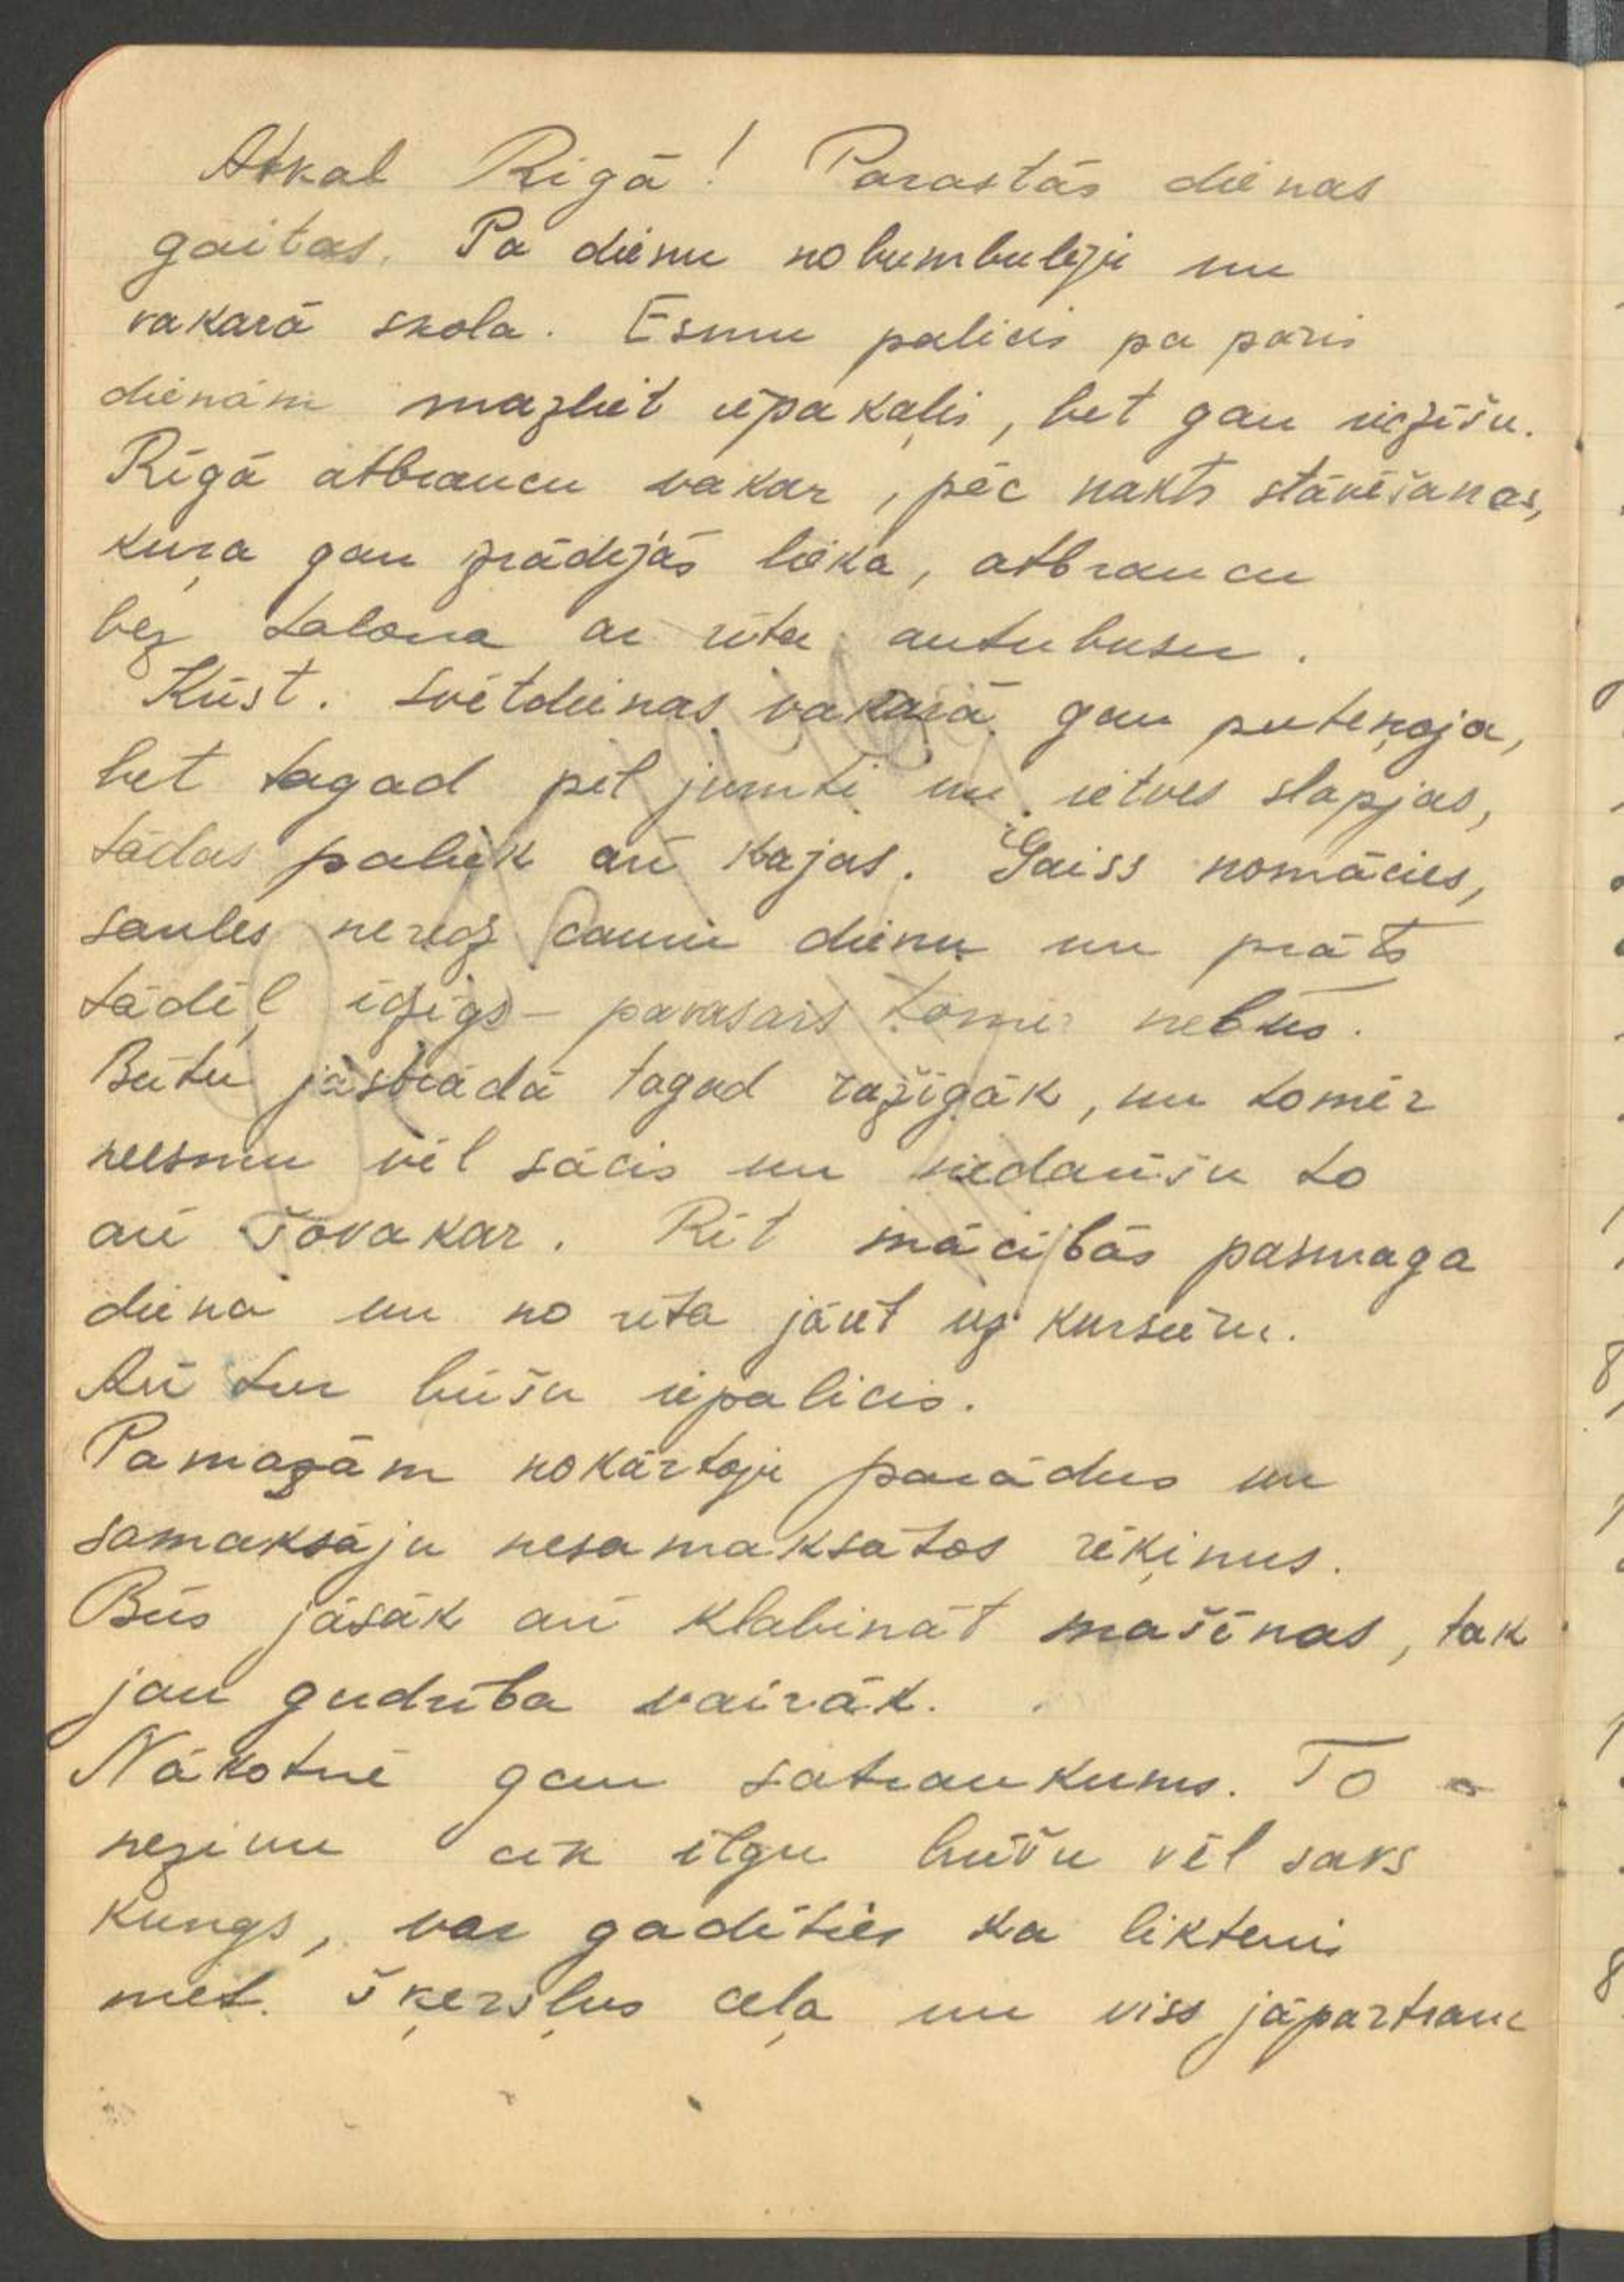 Atkal Rīgā! Parastās dienas
gaitas. Pa dienu nobumbulēju un
vakarā skola. Esmu palicis pa pāris
dienām mazliet iepakaļis, bet gan iedzīšu.
Rīgā atbraucu vakar, pēc nakts stāvēšanas,
kuŗa gan izrādījās lieka, atbraucu
bez talona ar rīta autobusu.
Kūst. Svētdienas vakarā gan puteņoja,
bet tagad pil jumti un ietves slapjas,
tādas paliek arī kājas. Gaiss nomācies,
saules neredz cauru dienu un prāts
tādēļ īdzīgs – pavasaris tomēr nebūs.
Būtu jāstrādā tagad ražīgāk, un tomēr
neesmu vēl sācis un nedarīšu to
arī šovakar. Rīt mācībās pasmaga
diena un no rīta jāiet uz kursiem.
Arī tur būšu iepalicis.
Pamazām nokārtoju parādus un
samaksāju nesamaksātos rēķinus.
Būs jāsāk arī klabināt mašīnas, tak
jau gudrība vairāk.
Nākotnē gan satraukums. To
nezinu cik ilgu būšu vēl savs
kungs, var gadīties ka liktenis
met šķēršļus ceļa un viss jāpārtrauc